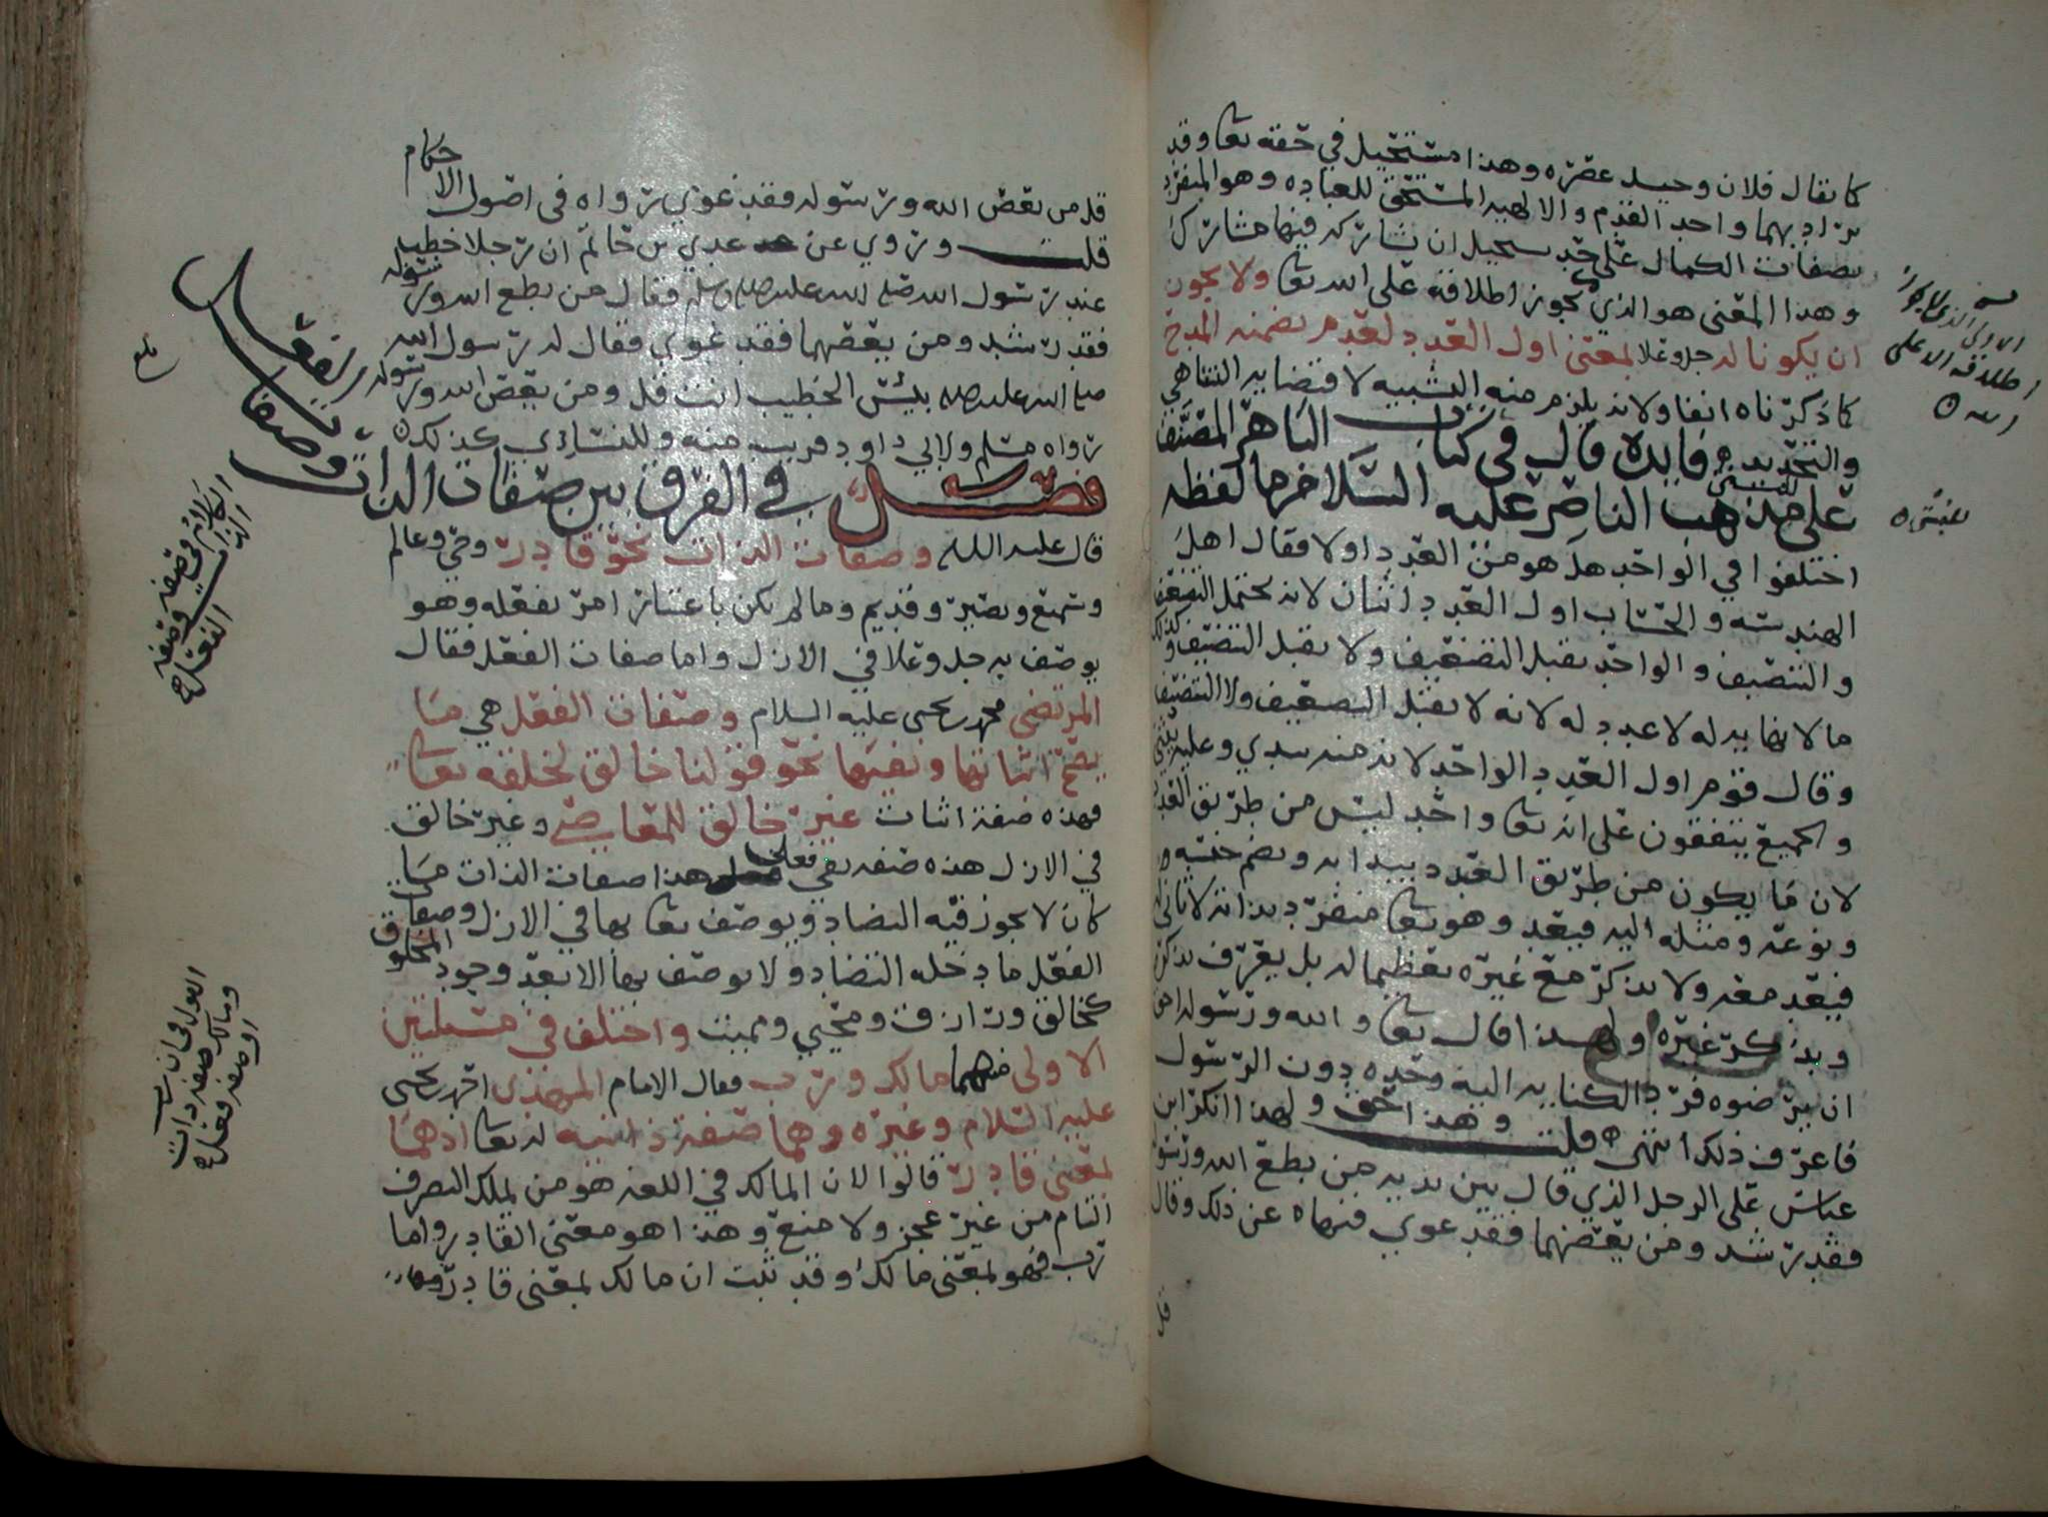 كما يقال فلان وحيد عصره وهذا مستحيل في حقه تعا وقد
يراد بهما واحد القدم والالهيه المستحق للعباده وهو المتفرد
بصفات الكمال على حد يستحيل ان يشاركه فيها مشارك
وهذا المعنى هو الذي يجوز اطلاقه على الله تعا ولا يجوز
ان يكونا له جل وعلا بمعنى اول العدد لعدم تضمنه المدح
كما ذكرناه انفا ولانه يلزم منه التشبيه لاقتضايه التناهي
والتحديد فايده قال في كتاب الباهر المصنف
على مذهب الناصر عليه السلام ما لفظه
اختلفوا في الواحد هل هو من العدد اولا فقال اهل
الهندسه والحساب اول العدد اثنان لانه يحتمل التضعيف
والتنصيف والواحد يقبل التضعيف ولا يقبل التنصيف وكذلك
ما لا نهايه له لا عدد له لانه لا يقبل التضعيف ولا التنصيف
وقال قوم اول العدد الواحد لانه منه يبتدي وعليه يبنى
والجميع يتفقون على انه تعا واحد ليس من طريق العدد
لان ما يكون من طريق العدد يبدا به ويضم جنسه
ونوعه ومثله اليه فيعد وهو تعا منفرد بذاته لا ثاني له
فيعد معه ولا يذكر مع غيره تعظيما له بل يعرف بذكره
ويذكر غيره ولهذا قال تعا والله ورسوله احق
ان يرضوه فرد الكنايه اليه وحده دون الرسول
فاعرف ذلك انتهى قلت وهذا حق ولهذا انكر ابن
عباس على الرجل الذي قال بين يديه من يطع الله ورسوله
فقد رشد ومن يعصهما فقد غوى فنهاه عن ذلك وقال
قل
الاولى الذي لا يجوز
اطلاقه الا على
الله
قل من يعص الله ورسوله فقد غوى رواه في اصول الاحكام
قلت وروي عن عدي بن حاتم ان رجلا خطب
عند رسول الله صلى الله عليه وسلم فقال من يطع الله ورسوله
فقد رشد ومن يعصهما فقد غوى فقال له رسول الله
صلى الله عليه بئس الخطيب انت قل ومن يعص الله ورسوله
رواه مسلم ولابي داود قريب منه وللنسائي كذلك
فصل في الفرق بين صفات الذات وصفات الفعل
قال عليه السلام وصفات الذات نحو قادر وحي وعالم
وسميع وبصير وقديم وما لم يكن باعتبار امر يفعله وهو
يوصف به جل وعلا في الازل واما صفات الفعل فقال
المرتضى محمد بن يحيى عليه السلام وصفات الفعل هي ما
يصح اثباتها ونفيها نحو قولنا خالق لخلقه تعا
فهذه صفة اثبات غير خالق للمعاصي وغير خالق
في الازل هذه صفه نفي فعلى هذا صفات الذات ما
كان لا يجوز فيه التضاد ويوصف تعا بها في الازل وصفات
الفعل ما دخله التضاد ولا يوصف بها الا بعد وجود المخلوق
كخالق ورازق ومحيي ومميت واختلف في مسئلتين
الاولى منهما مالك ورب فقال الامام المهدي احمد بن يحيى
عليه السلام وغيره وهما صفة ذاتيه له تعا اذ هما
بمعنى قادر قالوا لان المالك في اللغه هو من يملك التصرف
التام من غير عجز ولا منع وهذا هو معنى القادر واما
رب فهو بمعنى مالك وقد ثبت ان مالك بمعنى قادر
الكلام في صفه
الذات وصفه
الفعل
القول في ان رب
ومالك صفه ذات
او صفه فعل